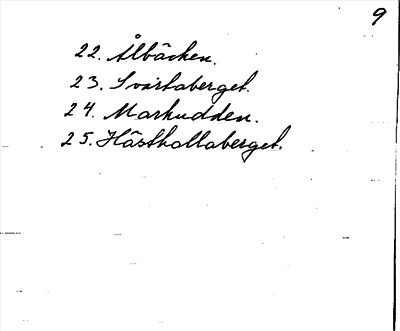 9
22. Ålbäcken.
23. Svartaberget.
24. Markudden.
25. Hästhallaberget.